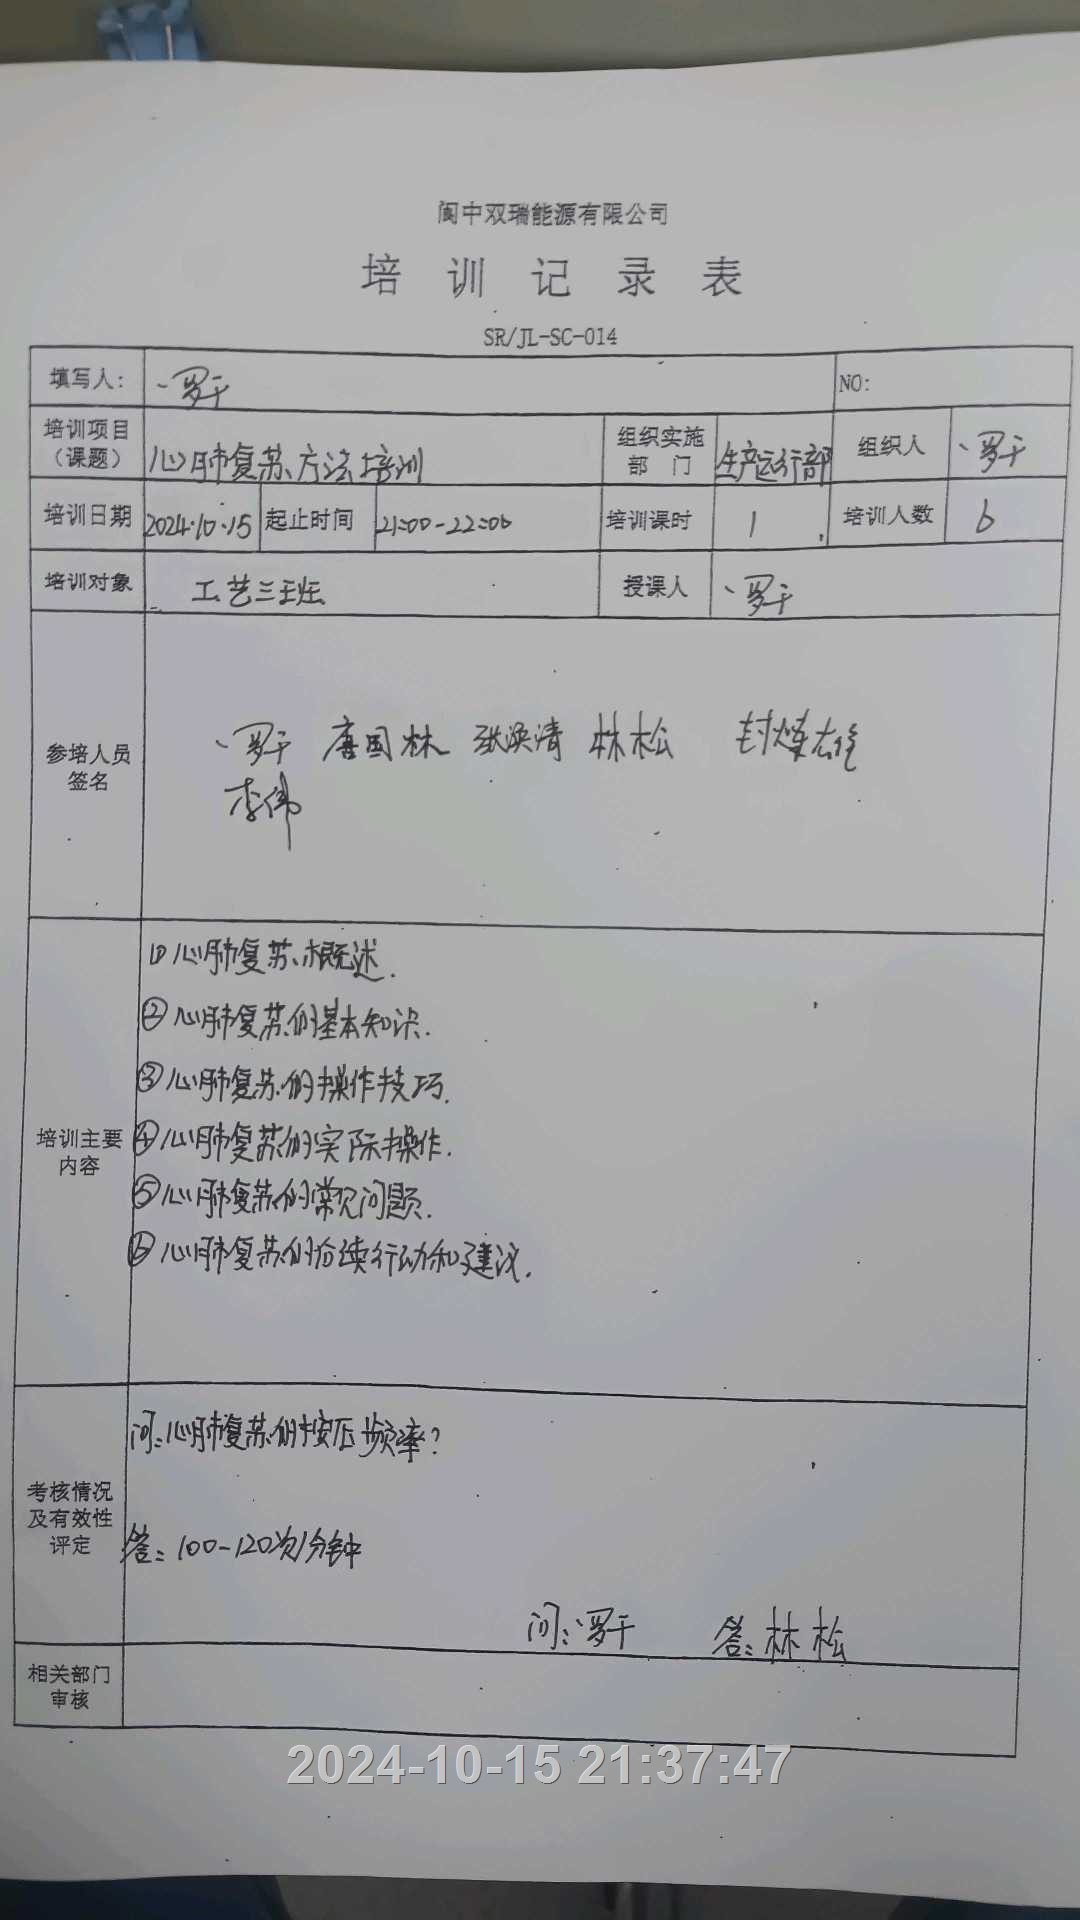 阆中双瑞能源有限公司
培训记录表
SR/JL-SC-014
填写人: 罗干 NO:
培训项目(课题) 心肺复苏方法培训 组织实施部门 生产运行部 组织人 罗干
培训日期 2024.10.15 起止时间 21:00-22:00 培训课时 1 培训人数 6
培训对象 工艺三班 授课人 罗干
参培人员签名
罗干 唐国林 张焕清 林松
李伟
培训主要内容
① 心肺复苏概述.
② 心肺复苏的基本知识.
③ 心肺复苏的操作技巧.
④ 心肺复苏的实际操作.
⑤ 心肺复苏的常见问题.
⑥ 心肺复苏的后续行动和建议.
考核情况及有效性评定
问:心肺复苏的按压频率?
答:100-120次/分钟
问:罗干 答:林松
相关部门审核
2024-10-15 21:37:47